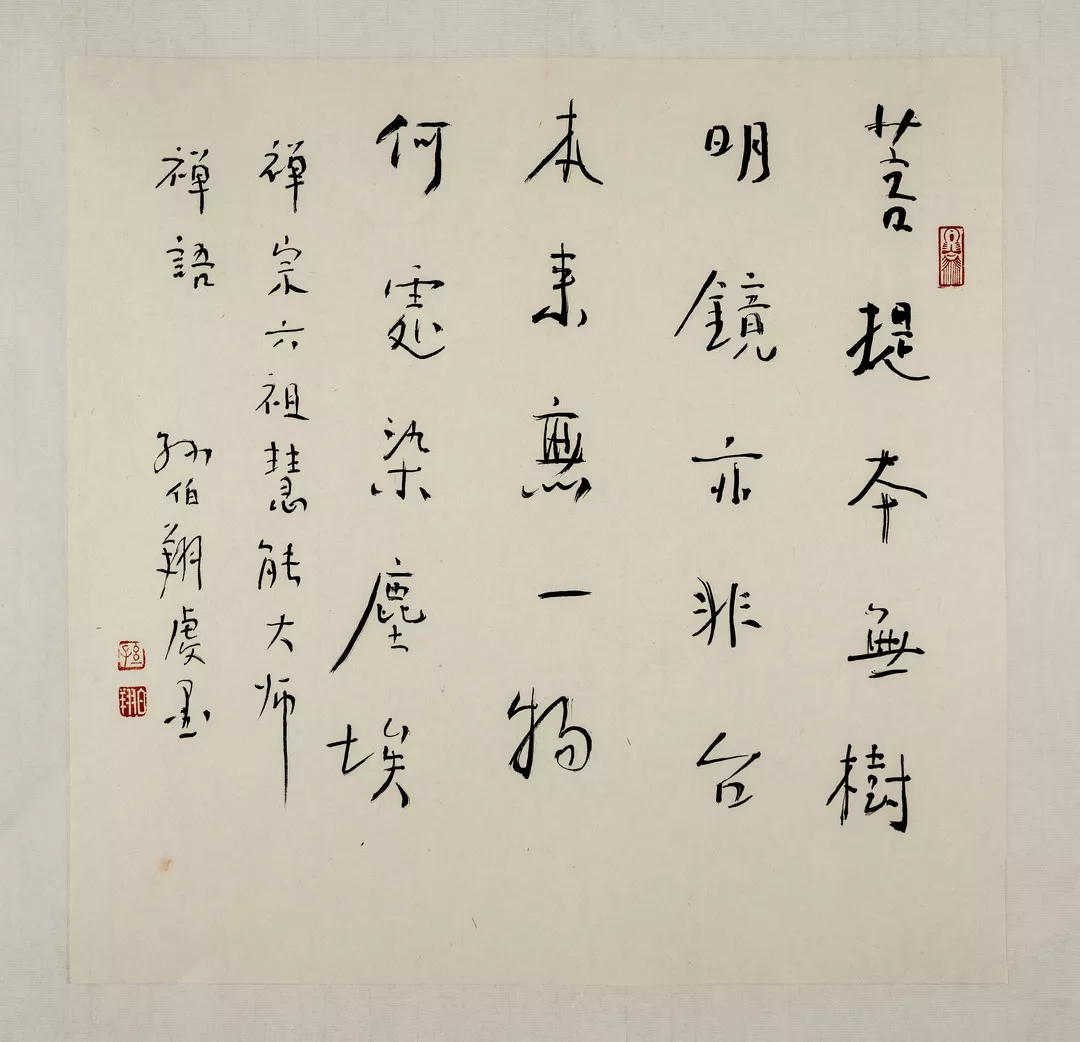 菩提本無樹
明鏡亦非台
本来無一物
何處染塵埃
禅宗六祖慧能大师
禅語 孙伯翔虔墨
孫
伯翔